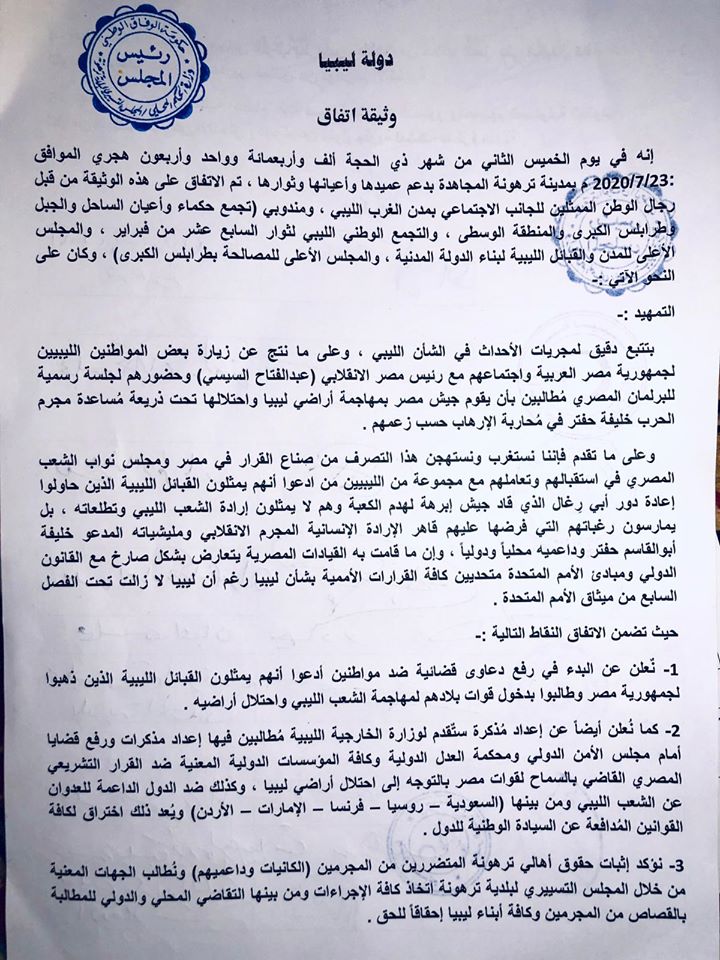 حكومة الوفاق الوطني
رئيس
المجلس
دولة ليبيا
وثيقة اتفاق
إنه في يوم الخميس الثاني من شهر ذي الحجة ألف وأربعمائة وواحد وأربعون هجري الموافق
:2020/7/23 م بمدينة ترهونة المجاهدة بدعم عميدها وأعيانها وثوارها ، تم الاتفاق على هذه الوثيقة من قبل
رجال الوطن الممثلين للجانب الاجتماعي بمدن الغرب الليبي ، ومندوبي (تجمع حكماء وأعيان الساحل والجبل
وطرابلس الكبرى والمنطقة الوسطى ، والتجمع الوطني الليبي لثوار السابع عشر من فبراير ، والمجلس
الأعلى للمدن والقبائل الليبية لبناء الدولة المدنية ، والمجلس الأعلى للمصالحة بطرابلس الكبرى) ، وكان على
النحو الآتي :-
التمهيد :-
بتتبع دقيق لمجريات الأحداث في الشأن الليبي ، وعلى ما نتج عن زيارة بعض المواطنين الليبيين
لجمهورية مصر العربية واجتماعهم مع رئيس مصر الانقلابي (عبدالفتاح السيسي) وحضورهم لجلسة رسمية
للبرلمان المصري مُطالبين بأن يقوم جيش مصر بمهاجمة أراضي ليبيا واحتلالها تحت ذريعة مُساعدة مجرم
الحرب خليفة حفتر في مُحاربة الإرهاب حسب زعمهم .
وعلى ما تقدم فإننا نستغرب ونستهجن هذا التصرف من صناع القرار في مصر ومجلس نواب الشعب
المصري في استقبالهم وتعاملهم مع مجموعة من الليبيين من ادعوا أنهم يمثلون القبائل الليبية الذين حاولوا
إعادة دور أبي رغال الذي قاد جيش إبرهة لهدم الكعبة وهم لا يمثلون إرادة الشعب الليبي وتطلعاته ، بل
يمارسون رغباتهم التي فرضها عليهم قاهر الإرادة الإنسانية المجرم الانقلابي ومليشياته المدعو خليفة
أبوالقاسم حفتر وداعميه محلياً ودولياً ، وإن ما قامت به القيادات المصرية يتعارض بشكل صارخ مع القانون
الدولي ومبادئ الأمم المتحدة متحديين كافة القرارات الأممية بشأن ليبيا رغم أن ليبيا لا زالت تحت الفصل
السابع من ميثاق الأمم المتحدة .
حيث تضمن الاتفاق النقاط التالية :-
1- نُعلن عن البدء في رفع دعاوى قضائية ضد مواطنين أدعوا أنهم يمثلون القبائل الليبية الذين ذهبوا
لجمهورية مصر وطالبوا بدخول قوات بلادهم لمهاجمة الشعب الليبي واحتلال أراضيه .
2- كما نُعلن أيضاً عن إعداد مُذكرة ستُقدم لوزارة الخارجية الليبية مُطالبين فيها إعداد مذكرات ورفع قضايا
أمام مجلس الأمن الدولي ومحكمة العدل الدولية وكافة المؤسسات الدولية المعنية ضد القرار التشريعي
المصري القاضي بالسماح لقوات مصر بالتوجه إلى احتلال أراضي ليبيا ، وكذلك ضد الدول الداعمة للعدوان
عن الشعب الليبي ومن بينها (السعودية – روسيا – فرنسا – الإمارات – الأردن) ويُعد ذلك اختراق لكافة
القوانين المُدافعة عن السيادة الوطنية للدول .
3- نؤكد إثبات حقوق أهالي ترهونة المتضررين من المجرمين (الكانيات وداعميهم) ونُطالب الجهات المعنية
من خلال المجلس التسييري لبلدية ترهونة اتخاذ كافة الإجراءات ومن بينها التقاضي المحلي والدولي للمطالبة
بالقصاص من المجرمين وكافة أبناء ليبيا إحقاقاً للحق .